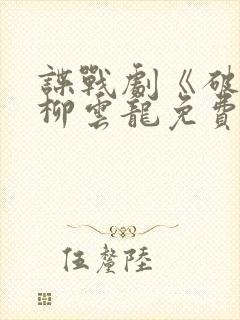 諜戰劇《破
柳雲龍免費
伍釐陸